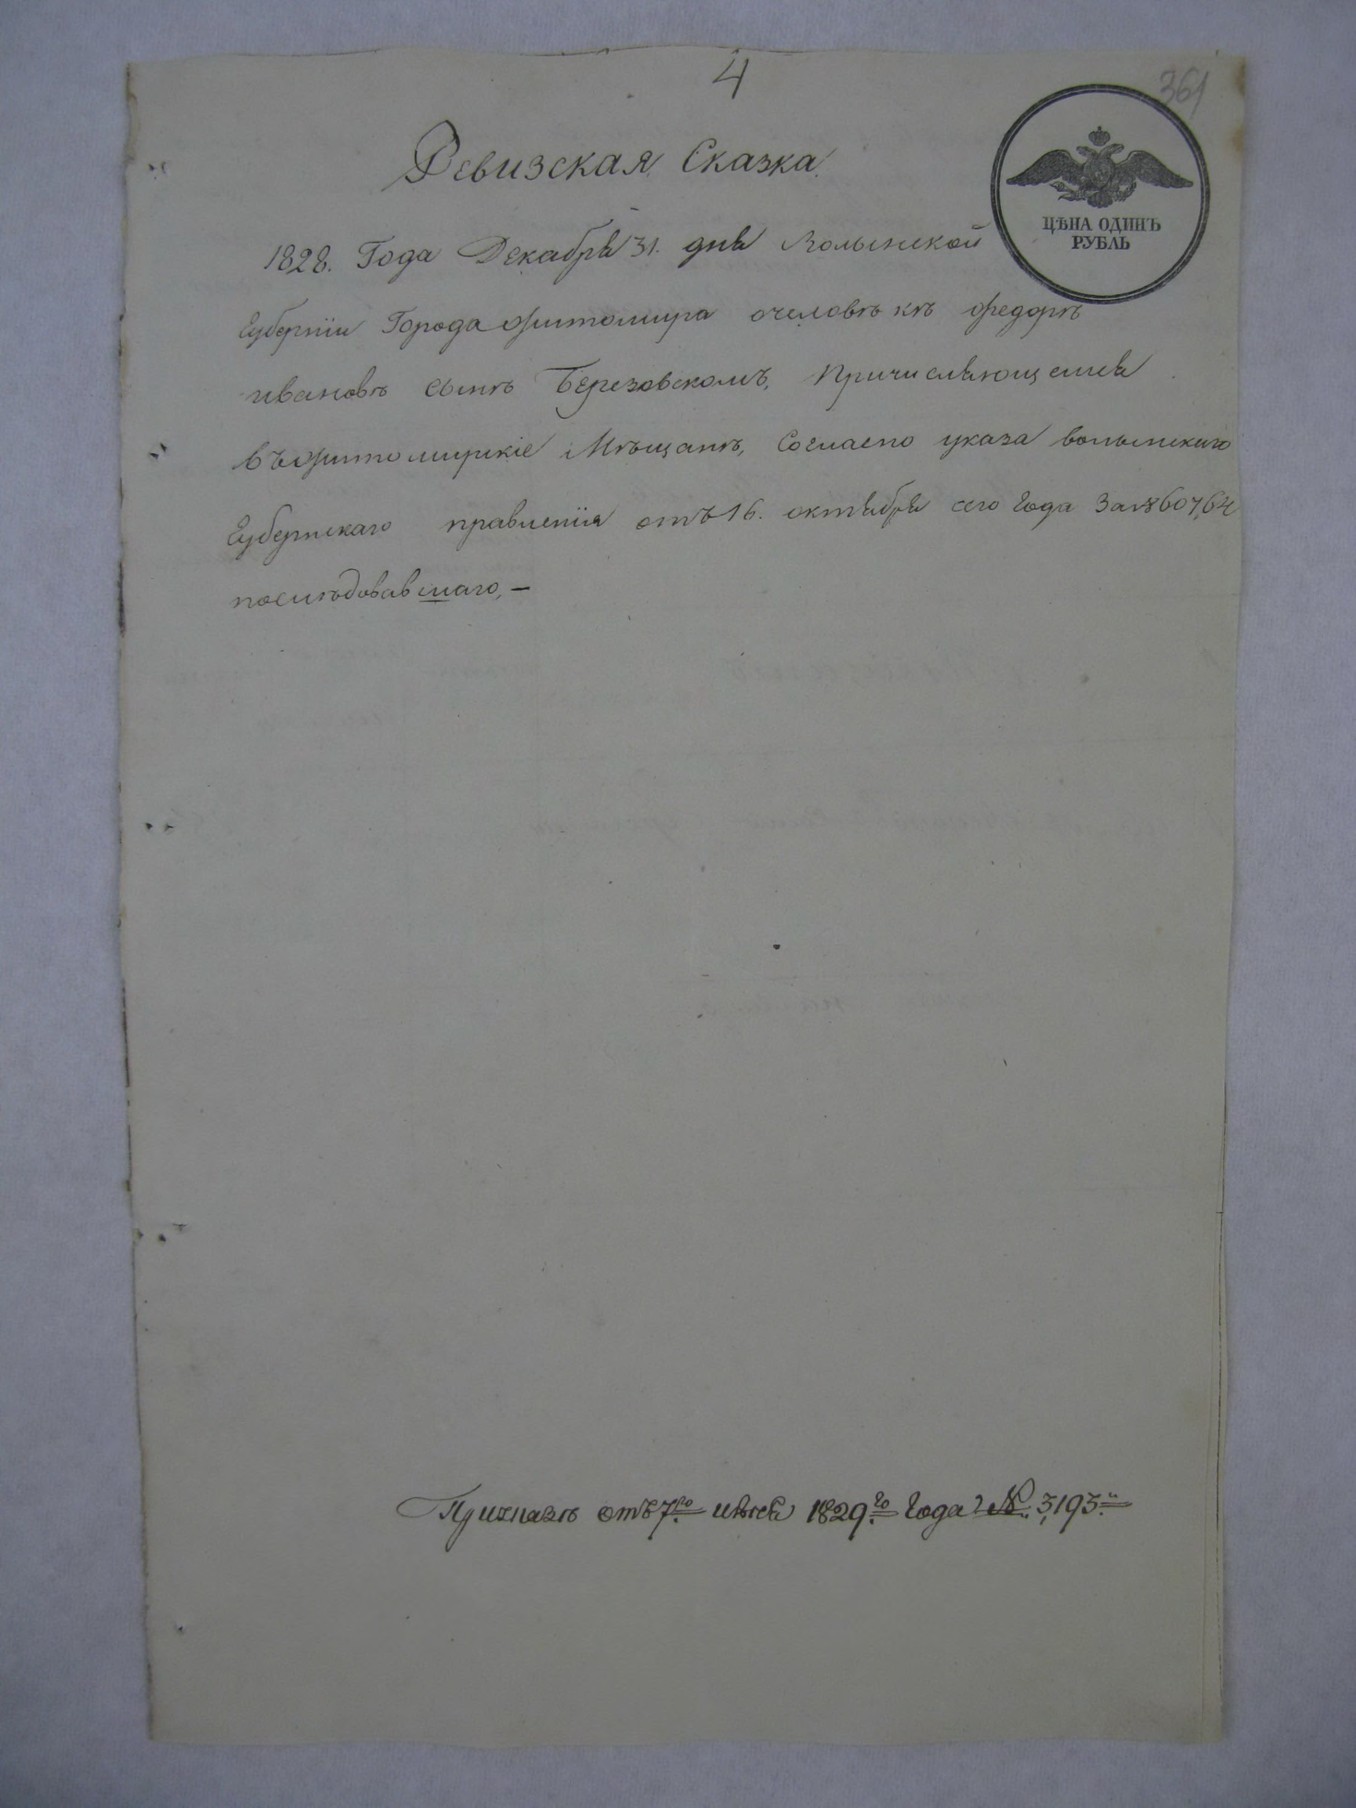 4
361
Ревизская Сказка.
ЦѢНА ОДИНЪ
РУБЛЬ
1828. Года Декабря 31. дня Волынской
Губерніи Города Житомира очеловѣкѣ Федорѣ
ивановѣ сынѣ Березовскомъ, Причисляющемся
въ Житомирскіе Мѣщанѣ, Согласно указа волынскаго
Губернскаго правленія отъ 16. октября сего Года За №
послѣдовавшаго, —
Приказъ отъ 7го 1829го Года №. 3,193.